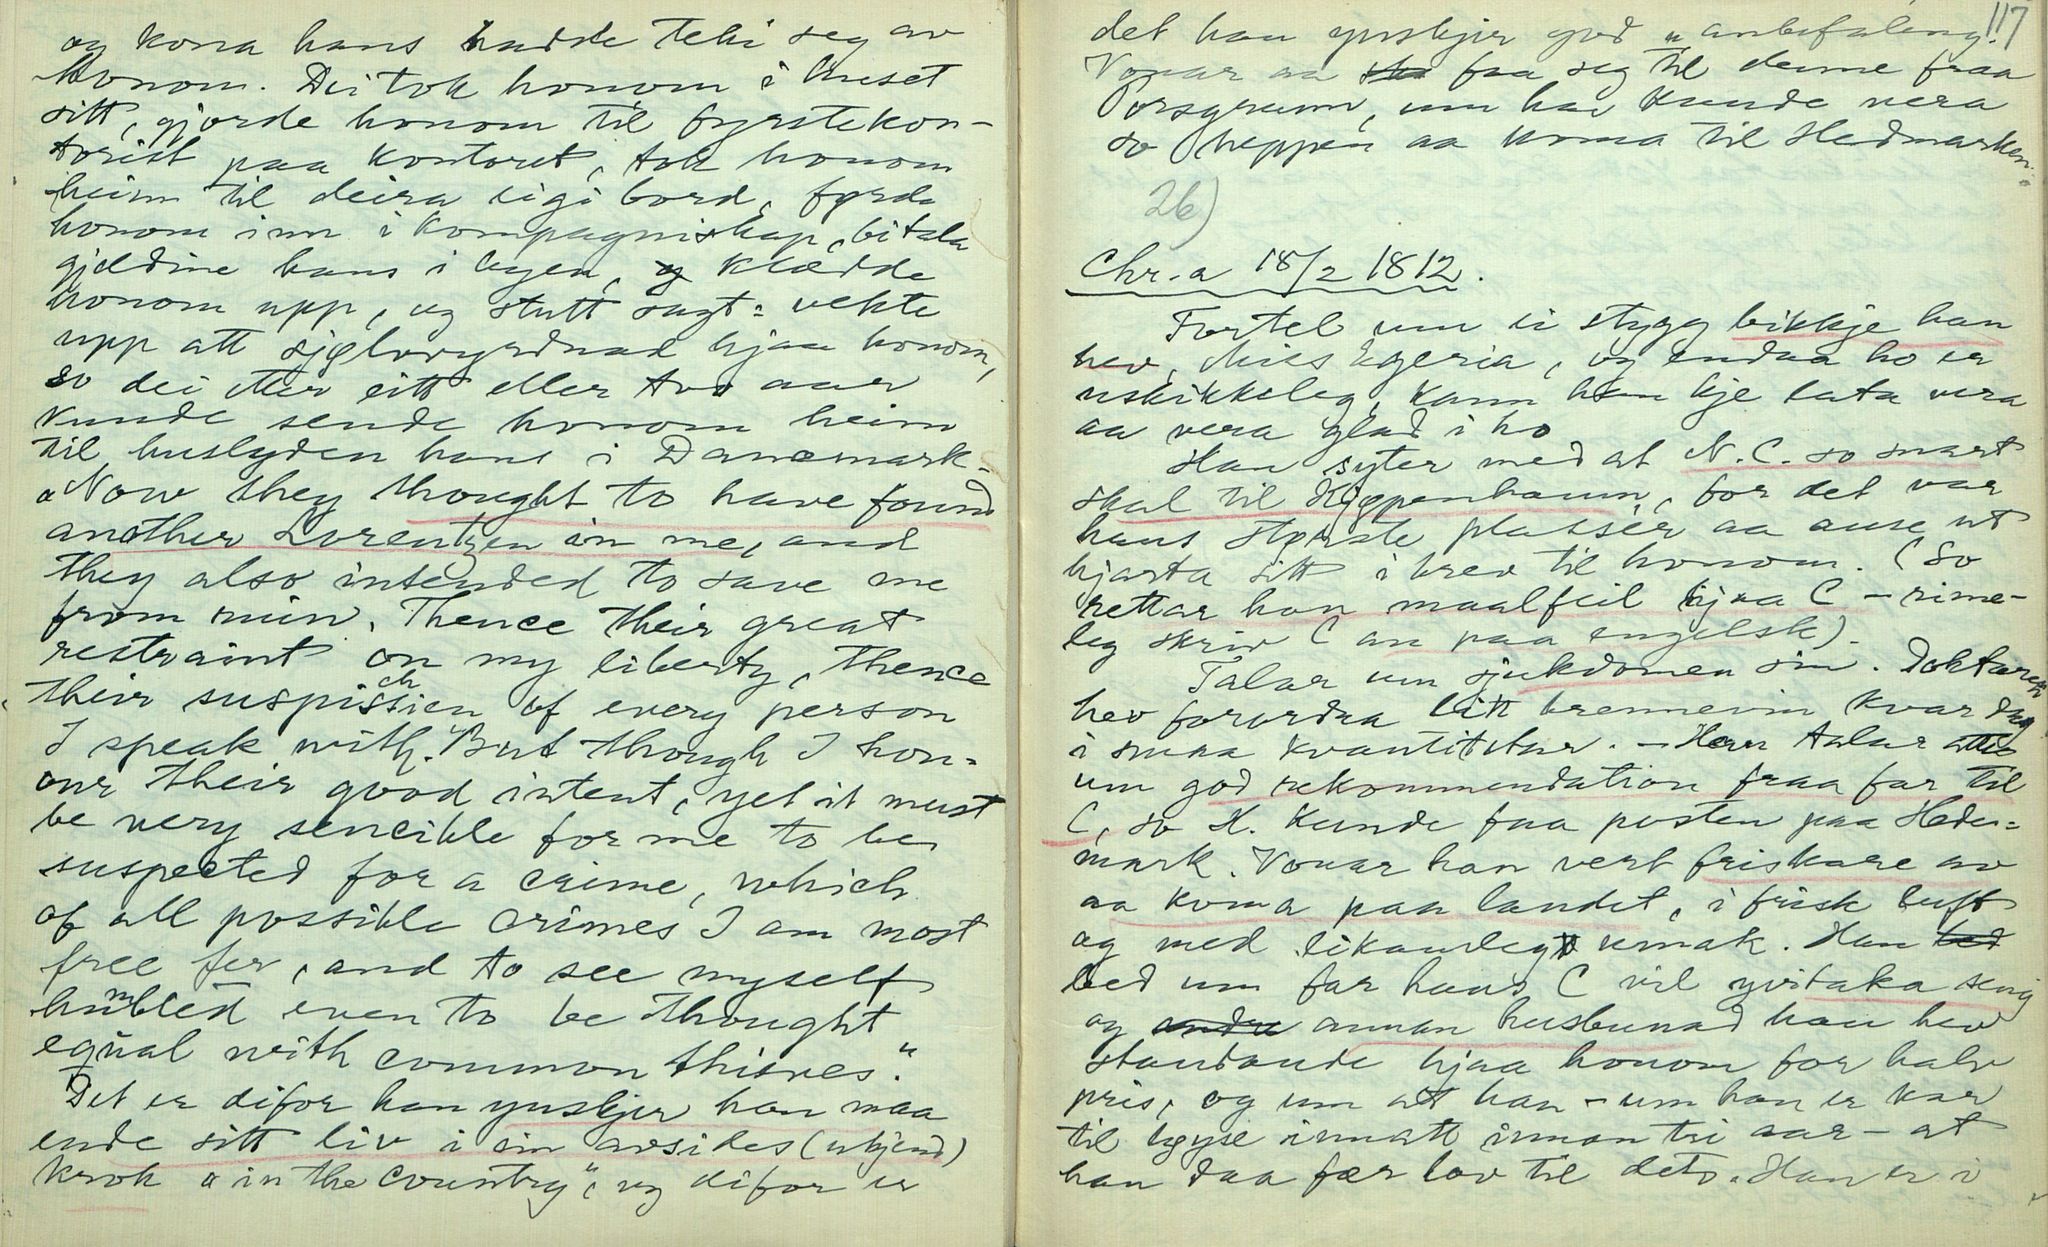 og kona hans hadde teki seg av
honom. Dei tok honom i huset
sitt, gjorde honom til fyrstekon-
torist paa kontoret, tok honom
heim til deira eigi bord, fyrde
honom inn i kompagniskap, bitala
gjeldine hans i byen, og klædde
honom upp, og stutt sagt: vekte
upp att sjølvvyrdnad hjaa honom,
so dei etter eitt eller tvo aar
kunde sende honom heim
til huslyden hans i Danemark.
"Now they thought to have found
another Lorentzen in me, and
they also intended to save me
from ruin. Thence their great
restraint on my liberty, thence
their suspicion of every person
I speak with. But though I hon-
our their good intent, yet it must
be very sencible for me to be
suspected for a crime, which
of all possible crimes I am most
free for, and to see myself
humbled even to be thought
equal with common thieves."
Det er difor han ynskjer han maa
ende sitt liv i ein avsides (ukjend)
krok "in the country", og difor er
117
det han ynskjer god "anbefaling".
Vonar aa faa seg til denne fraa
Porsgrunn, um han kunde vera
so heppen aa koma til Hedmarken.
26)
Chr.a 18/2 1812.
Fortel um ei stygg bikkje han
hev, Miss Egeria, og endaa ho er
uskikkeleg, kann han kje lata vera
aa vera glad i ho
Han syter med at N.C. so snart
skal til Kjøppenhamn, for det var
hans største plassér aa ause ut
hjarta sitt i brev til honom. (So
rettar han maalfeil hjaa C – rime-
leg skriv C an paa engelsk).
Talar um sjukdomen sin. Doktaren
hev forordna litt brennevin kvar dag
i smaa kvantitetar. – Han talar atter
um god rekommendation fraa far til
C, so H. kunde faa posten paa Hede-
mark. Vonar han vert friskare av
aa koma paa landet, i frisk luft
og med likamlegt umak. Han bed
bed um far hans C vil yvertaka seng
og andre annan husbunad han hev
standande hjaa honom for halv
pris, og um at han – um han er kar
til løyse inn att innan tri aar – at
han daa fær lov til det. Han er i